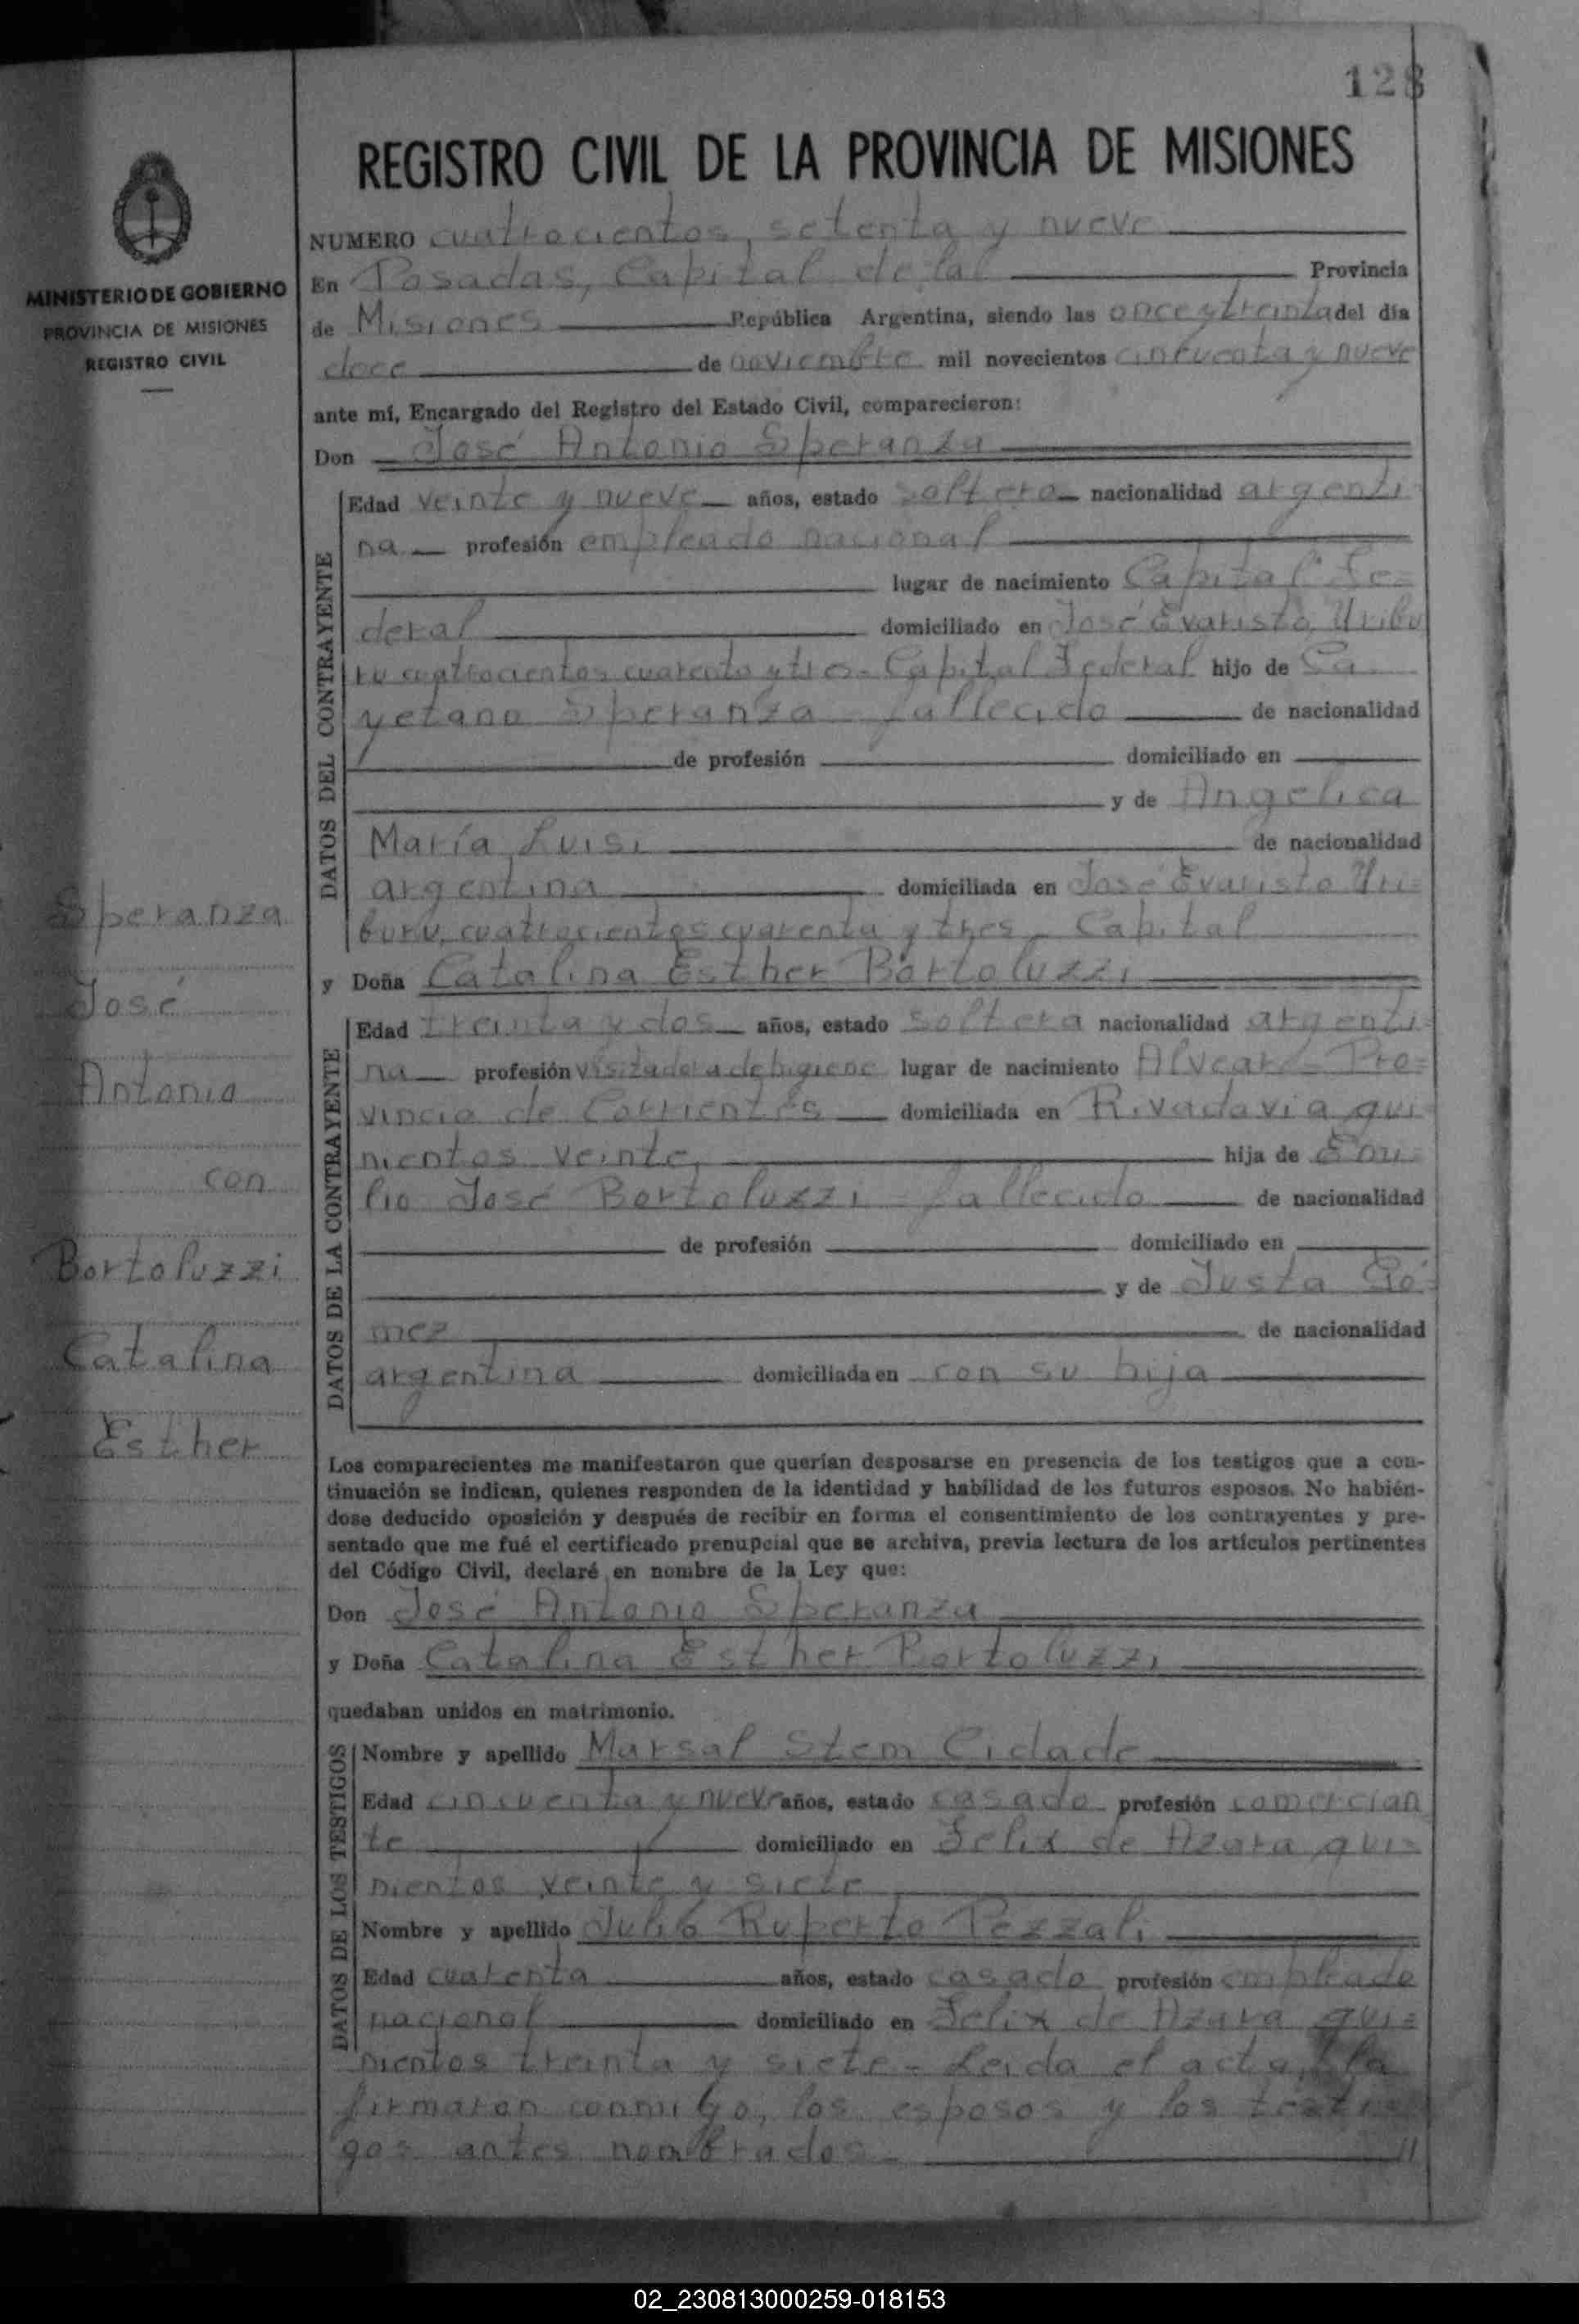 128
REGISTRO CIVIL DE LA PROVINCIA DE MISIONES
MINISTERIO DE GOBIERNO
PROVINCIA DE MISIONES
REGISTRO CIVIL
NUMERO cuatrocientos, setenta y nueve
En Posadas, Capital de la Provincia
de Misiones República Argentina, siendo las once y treinta del día
doce de noviembre mil novecientos cincuenta y nueve
ante mí, Encargado del Registro del Estado Civil, comparecieron:
Don José Antonio Speranza
DATOS DEL CONTRAYENTE
Edad veinte y nueve años, estado soltero nacionalidad argenti
na profesión empleado nacional
lugar de nacimiento Capital Fe=
deral domiciliado en José Evaristo Uribu
ru cuatrocientos cuarenta y tres - Capital Federal hijo de Ca
yetano Speranza - fallecido de nacionalidad
de profesión domiciliado en
y de Angélica
María Luisi de nacionalidad
argentina domiciliada en José Evaristo Uri=
buru, cuatrocientos cuarenta y tres - Capital
y Doña Catalina Esther Bortoluzzi
DATOS DE LA CONTRAYENTE
Edad treinta y dos años, estado soltera nacionalidad argenti=
na profesión visitadora de higiene lugar de nacimiento Alvear - Pro=
vincia de Corrientes domiciliada en Rivadavia qui
nientos veinte, hija de Emi=
lio José Bortoluzzi - fallecido de nacionalidad
de profesión domiciliado en
y de Justa Gó=
mez de nacionalidad
argentina domiciliada en con su hija
Speranza
José
Antonio
con
Bortoluzzi
Catalina
Esther
Los comparecientes me manifestaron que querían desposarse en presencia de los testigos que a con-
tinuación se indican, quienes responden de la identidad y habilidad de los futuros esposos. No habién-
dose deducido oposición y después de recibir en forma el consentimiento de los contrayentes y pre-
sentado que me fué el certificado prenupcial que se archiva, previa lectura de los artículos pertinentes
del Código Civil, declaré en nombre de la Ley que:
Don José Antonio Speranza
y Doña Catalina Esther Bortoluzzi
quedaban unidos en matrimonio.
DATOS DE LOS TESTIGOS
Nombre y apellido Marsal Stem Cidade
Edad cincuenta y nueve años, estado casado profesión comercian
te domiciliado en Felix de Azara qui=
nientos veinte y siete
Nombre y apellido Julio Ruperto Pezzali
Edad cuarenta años, estado casado profesión empleado
nacional domiciliado en Felix de Azara qui=
nientos treinta y siete - Leida el acta, la
firmaron conmigo, los esposos y los testi
gos antes nombrados - //
02_230813000259-018153